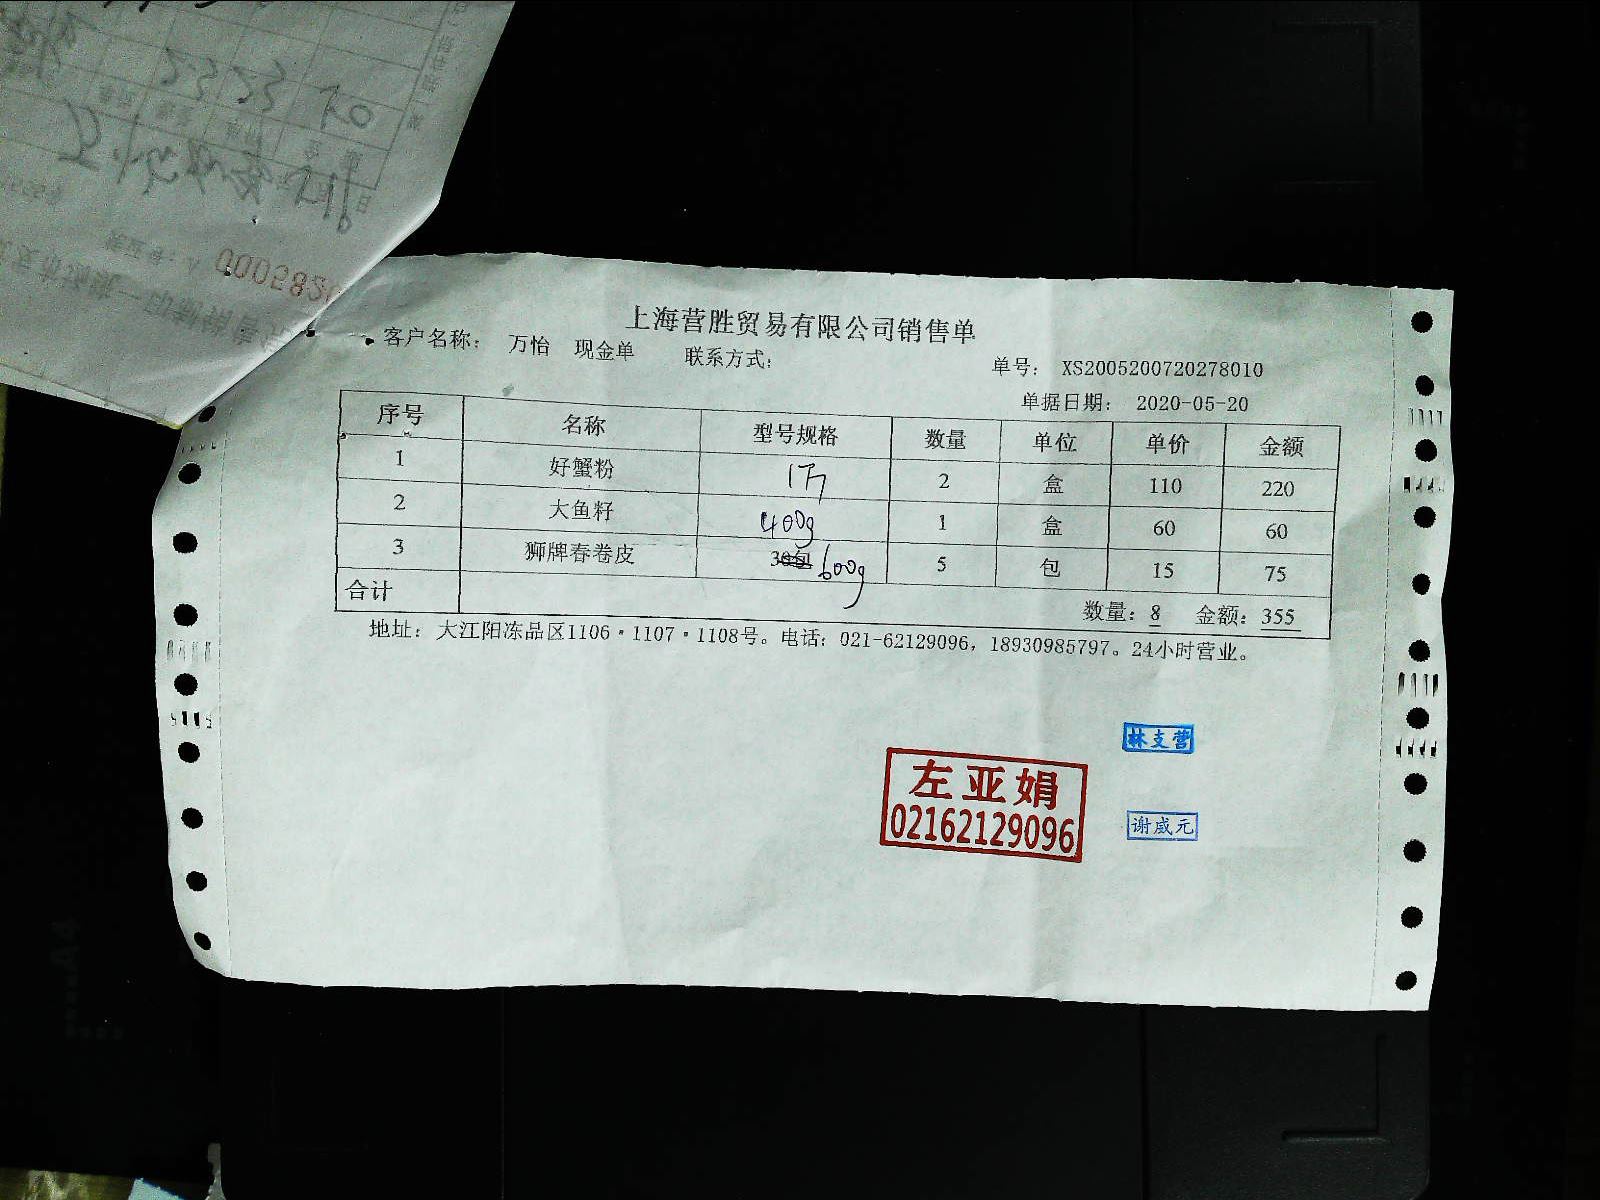 0005820
上海营胜贸易有限公司销售单
客户名称： 万怡 现金单 联系方式：
单号： XS2005200720278010
单据日期： 2020-05-20
序号 名称 型号规格 数量 单位 单价 金额
1 好蟹粉 1斤 2 盒 110 220
2 大鱼籽 400g 1 盒 60 60
3 狮牌春卷皮 600g 5 包 15 75
合计 数量：8 金额：355
地址： 大江阳冻品区1106·1107·1108号。电话：021-62129096，18930985797。24小时营业。
林支营
左亚娟
02162129096
谢威元